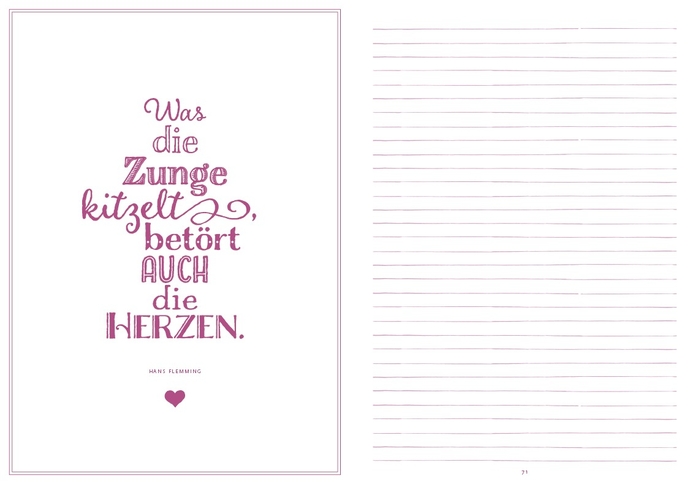 Was
die
Zunge
kitzelt,
betört
AUCH
die
HERZEN.
HANS FLEMMING
71